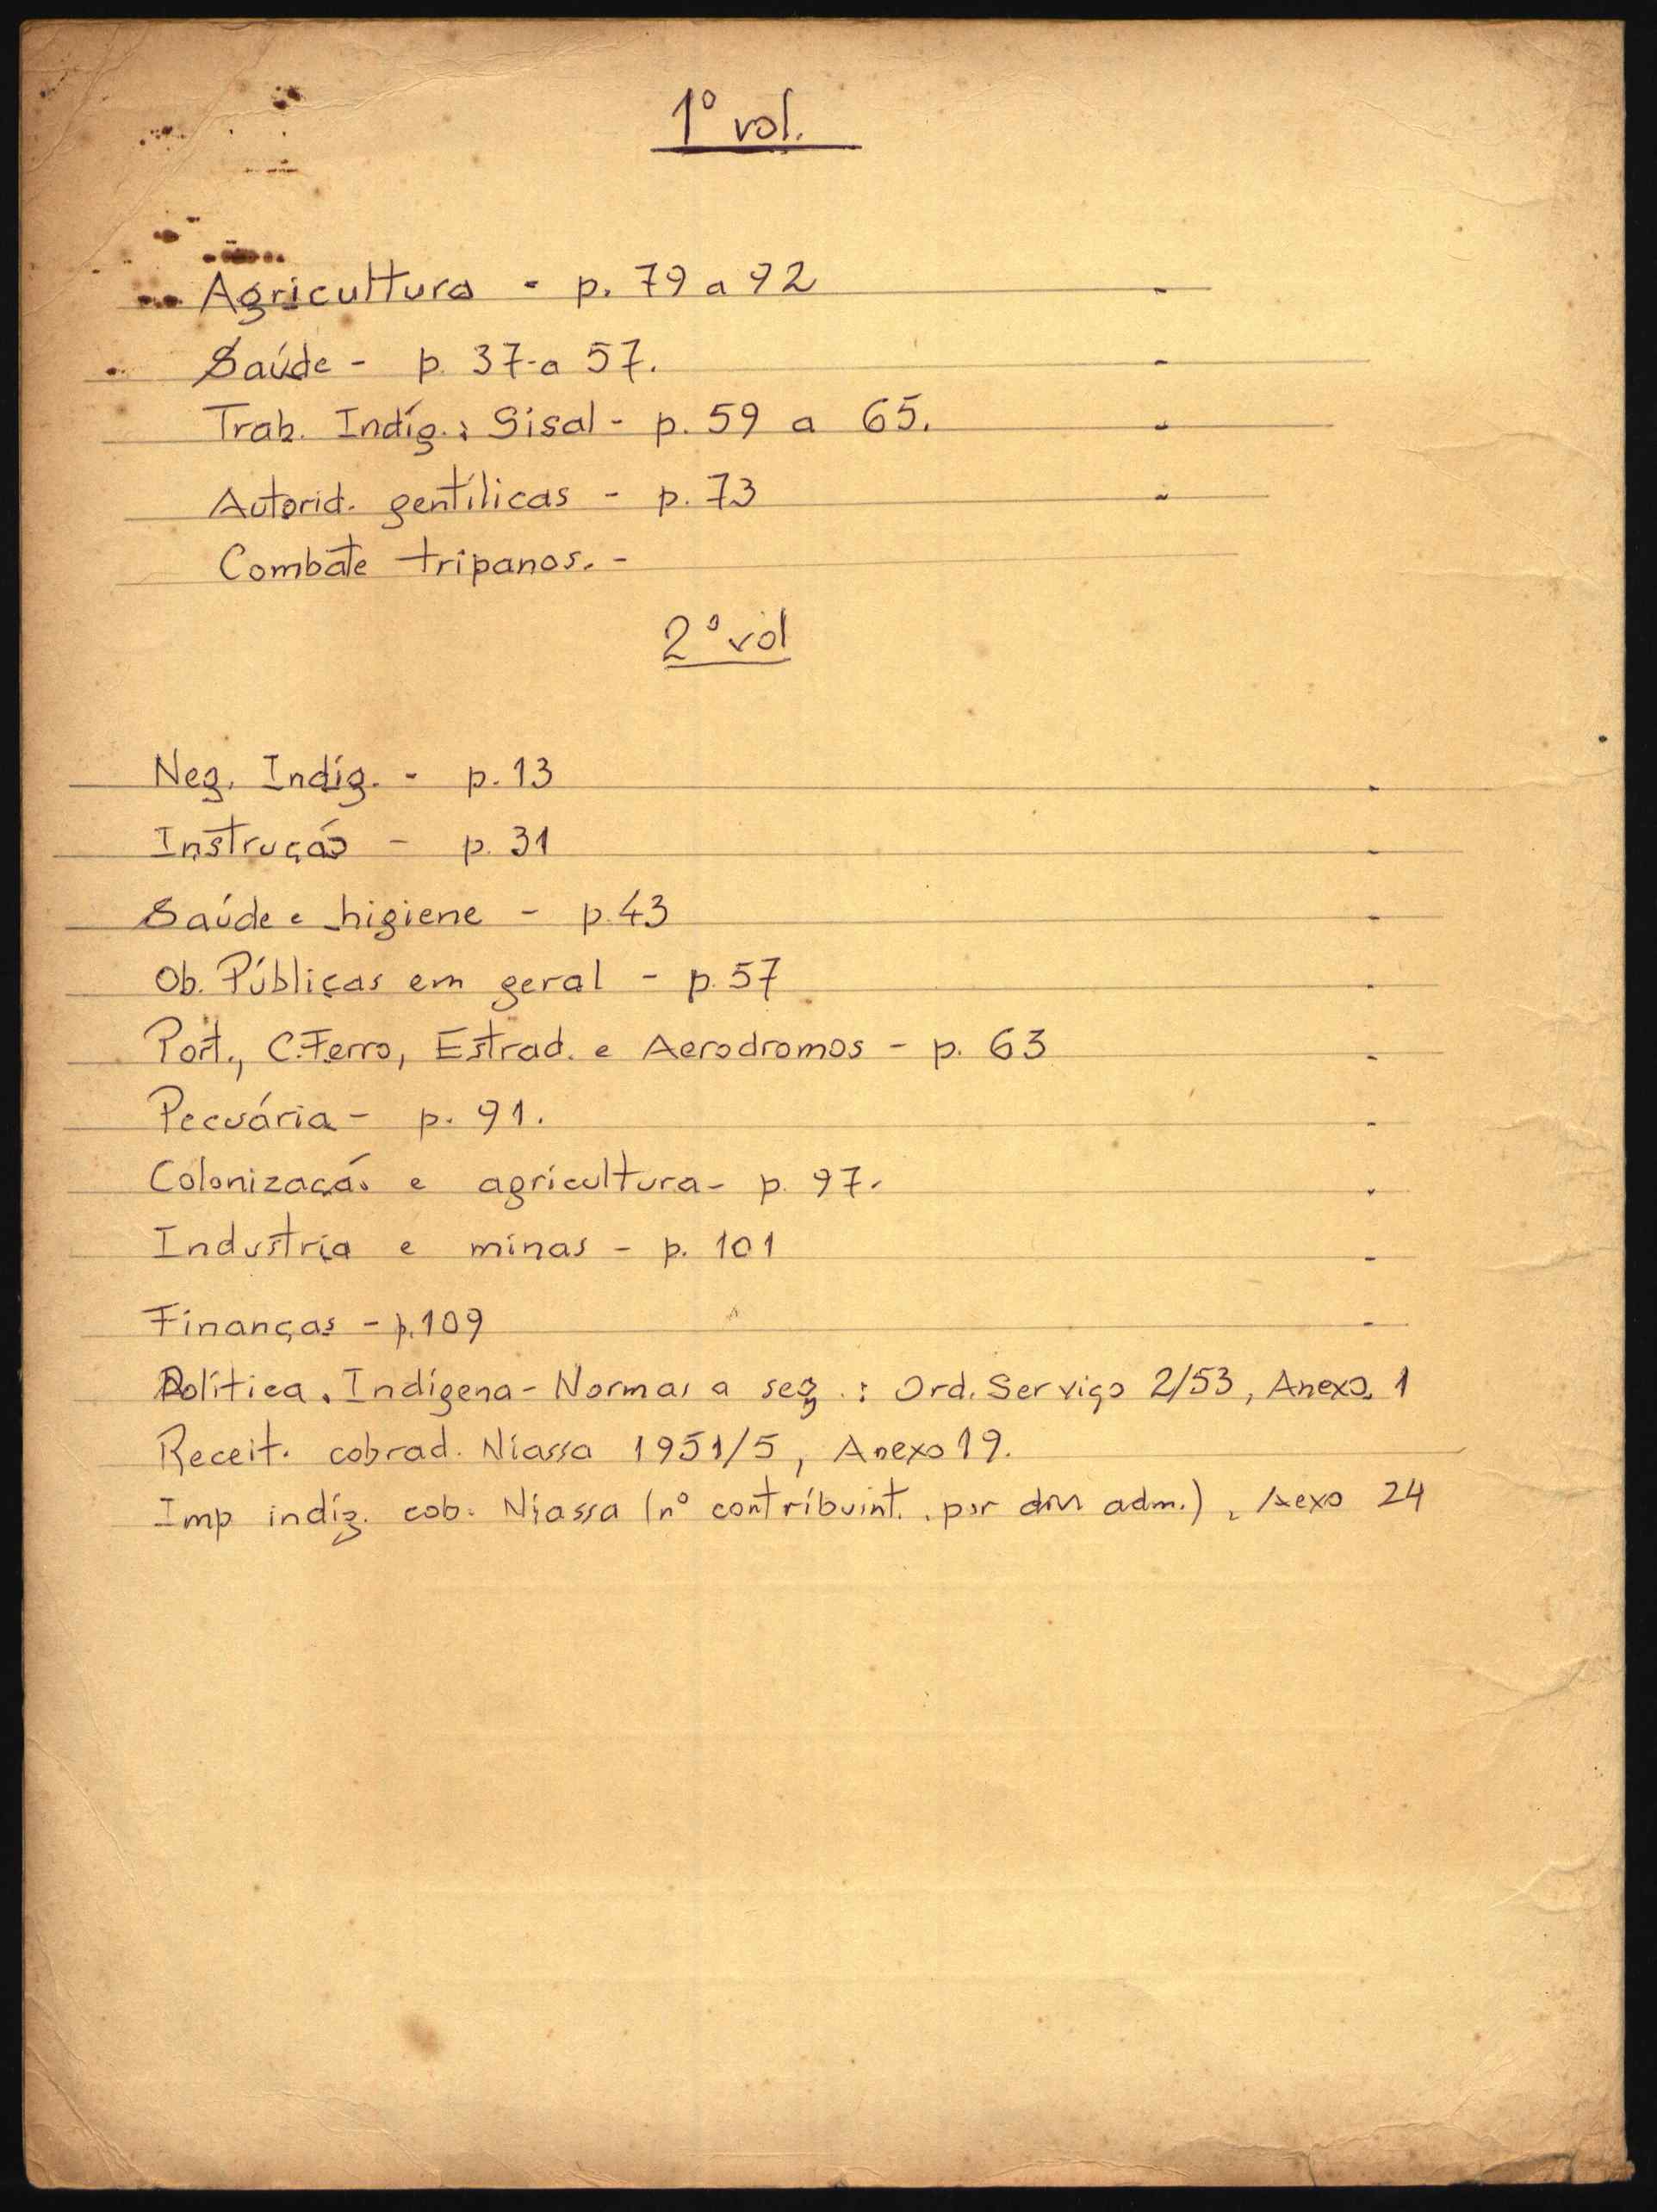 1º vol.
Agricultura - p. 79 a 92
Saúde - p. 37 a 57.
Trab. Indíg.: Sisal - p. 59 a 65.
Autorid. gentílicas - p. 73
Combate tripanos. -
2º vol
Neg. Indíg. - p. 13
Instrução - p. 31
Saúde e higiene - p. 43
Ob. Públicas em geral - p. 57
Port., C. Ferro, Estrad. e Aerodromos - p. 63
Pecuária - p. 91.
Colonização e agricultura - p. 97.
Industria e minas - p. 101
Finanças - p. 109
Política Indígena - Normas a seg.: Ord. Serviço 2/53, Anexo 1
Receit. cobrad. Niassa 1951/5, Anexo 19.
Imp indíg. cob. Niassa (nº contribuint. por div adm.), Aexo 24